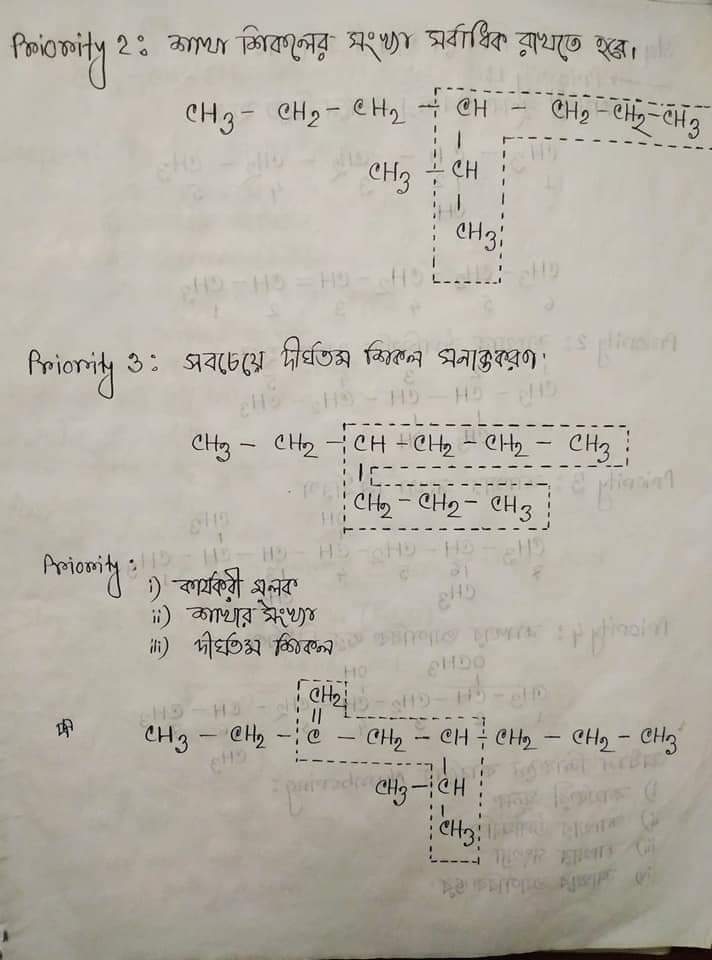 Priority 2: শাখা শিকলের সংখ্যা সর্বাধিক রাখতে হবে।
CH3 - CH2 - CH2 - CH - CH2 - CH2 - CH3
CH3 - CH
CH3
Priority 3: সবচেয়ে দীর্ঘতম শিকল সনাক্তকরণ।
CH3 - CH2 - CH - CH2 - CH2 - CH3
CH2 - CH2 - CH3
Priority:
i) কার্যকরী মূলক
ii) শাখার সংখ্যা
iii) দীর্ঘতম শিকল
CH2
CH3 - CH2 - C - CH2 - CH - CH2 - CH2 - CH3
CH3 - CH
CH3